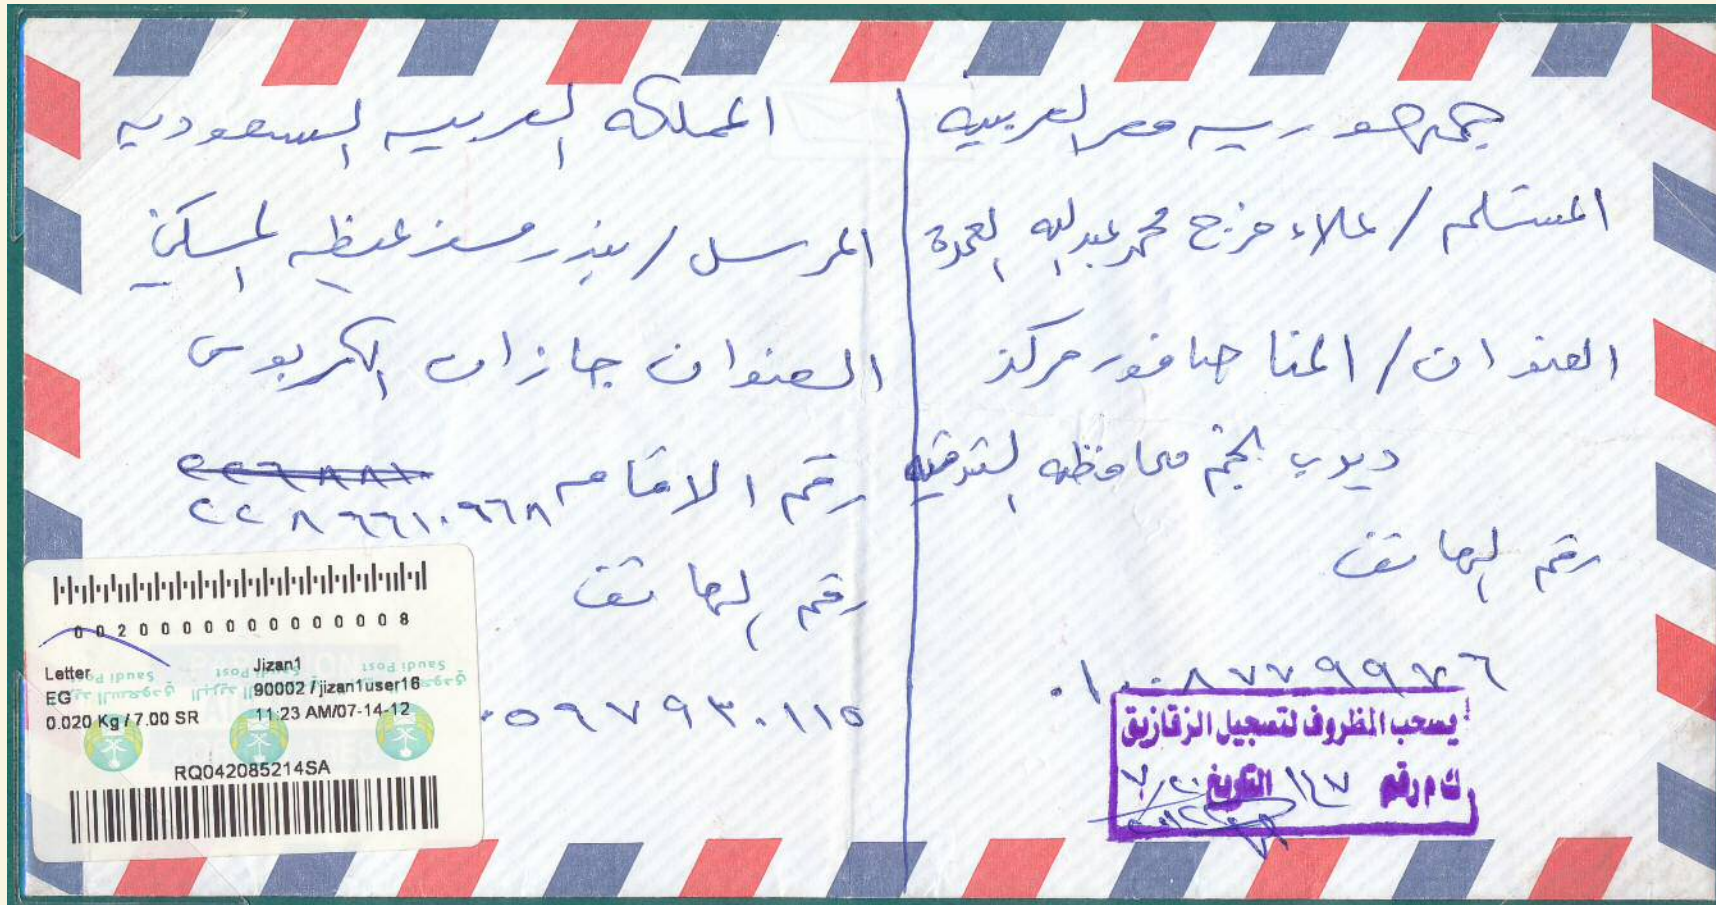 جمهوريه مصر العربيه
المستلم / علاء فرج محمد عبدالله العمدة
العنوان / المنا صافور مركز
ديرب نجم محافظه الشرقيه
رقم الهاتف
٠١٠٠٨٧٧٩٩٧٦
يسحب المظروف لتسجيل الزقازيق
رقم التاريخ ٧/٢٠
المملكه العربيه السعوديه
المرسل / بندر
العنوان جازان الكربوس
رقم الاقامه
٢٢٨٦٦١٠٩٦٨
رقم الهاتف
٠٥٩٧٩٣٠١١٥
0 0 2 0 0 0 0 0 0 0 0 0 0 0 0 8
Letter Jizan1
EG 90002 / jizan1user16
0.020 Kg / 7.00 SR 11:23 AM/07-14-12
RQ042085214SA